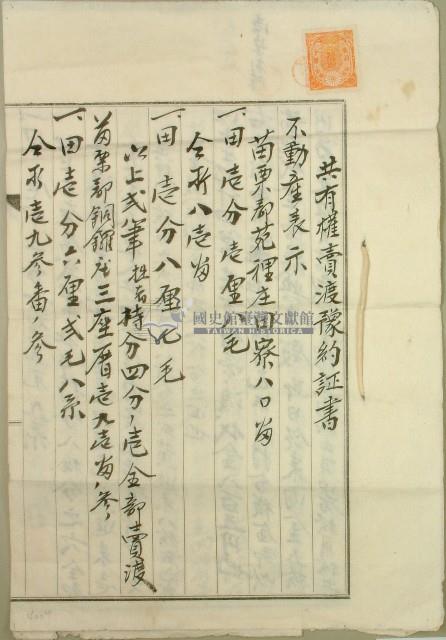 共有權賣渡豫約証書
不動產表示
苗栗郡苑裡庄田寮八〇番
一、田壱分壱厘八毛
仝所八壱番
一、田壱分八厘七毛
以上弍筆拙者持分四分ノ壱全部賣渡
苗栗郡銅鑼庄三座厝壱九壱番ノ參
一、田壱分六厘弍毛八糸
仝所壱九參番ノ參
國史館臺灣文獻館
TAIWAN HISTORICA